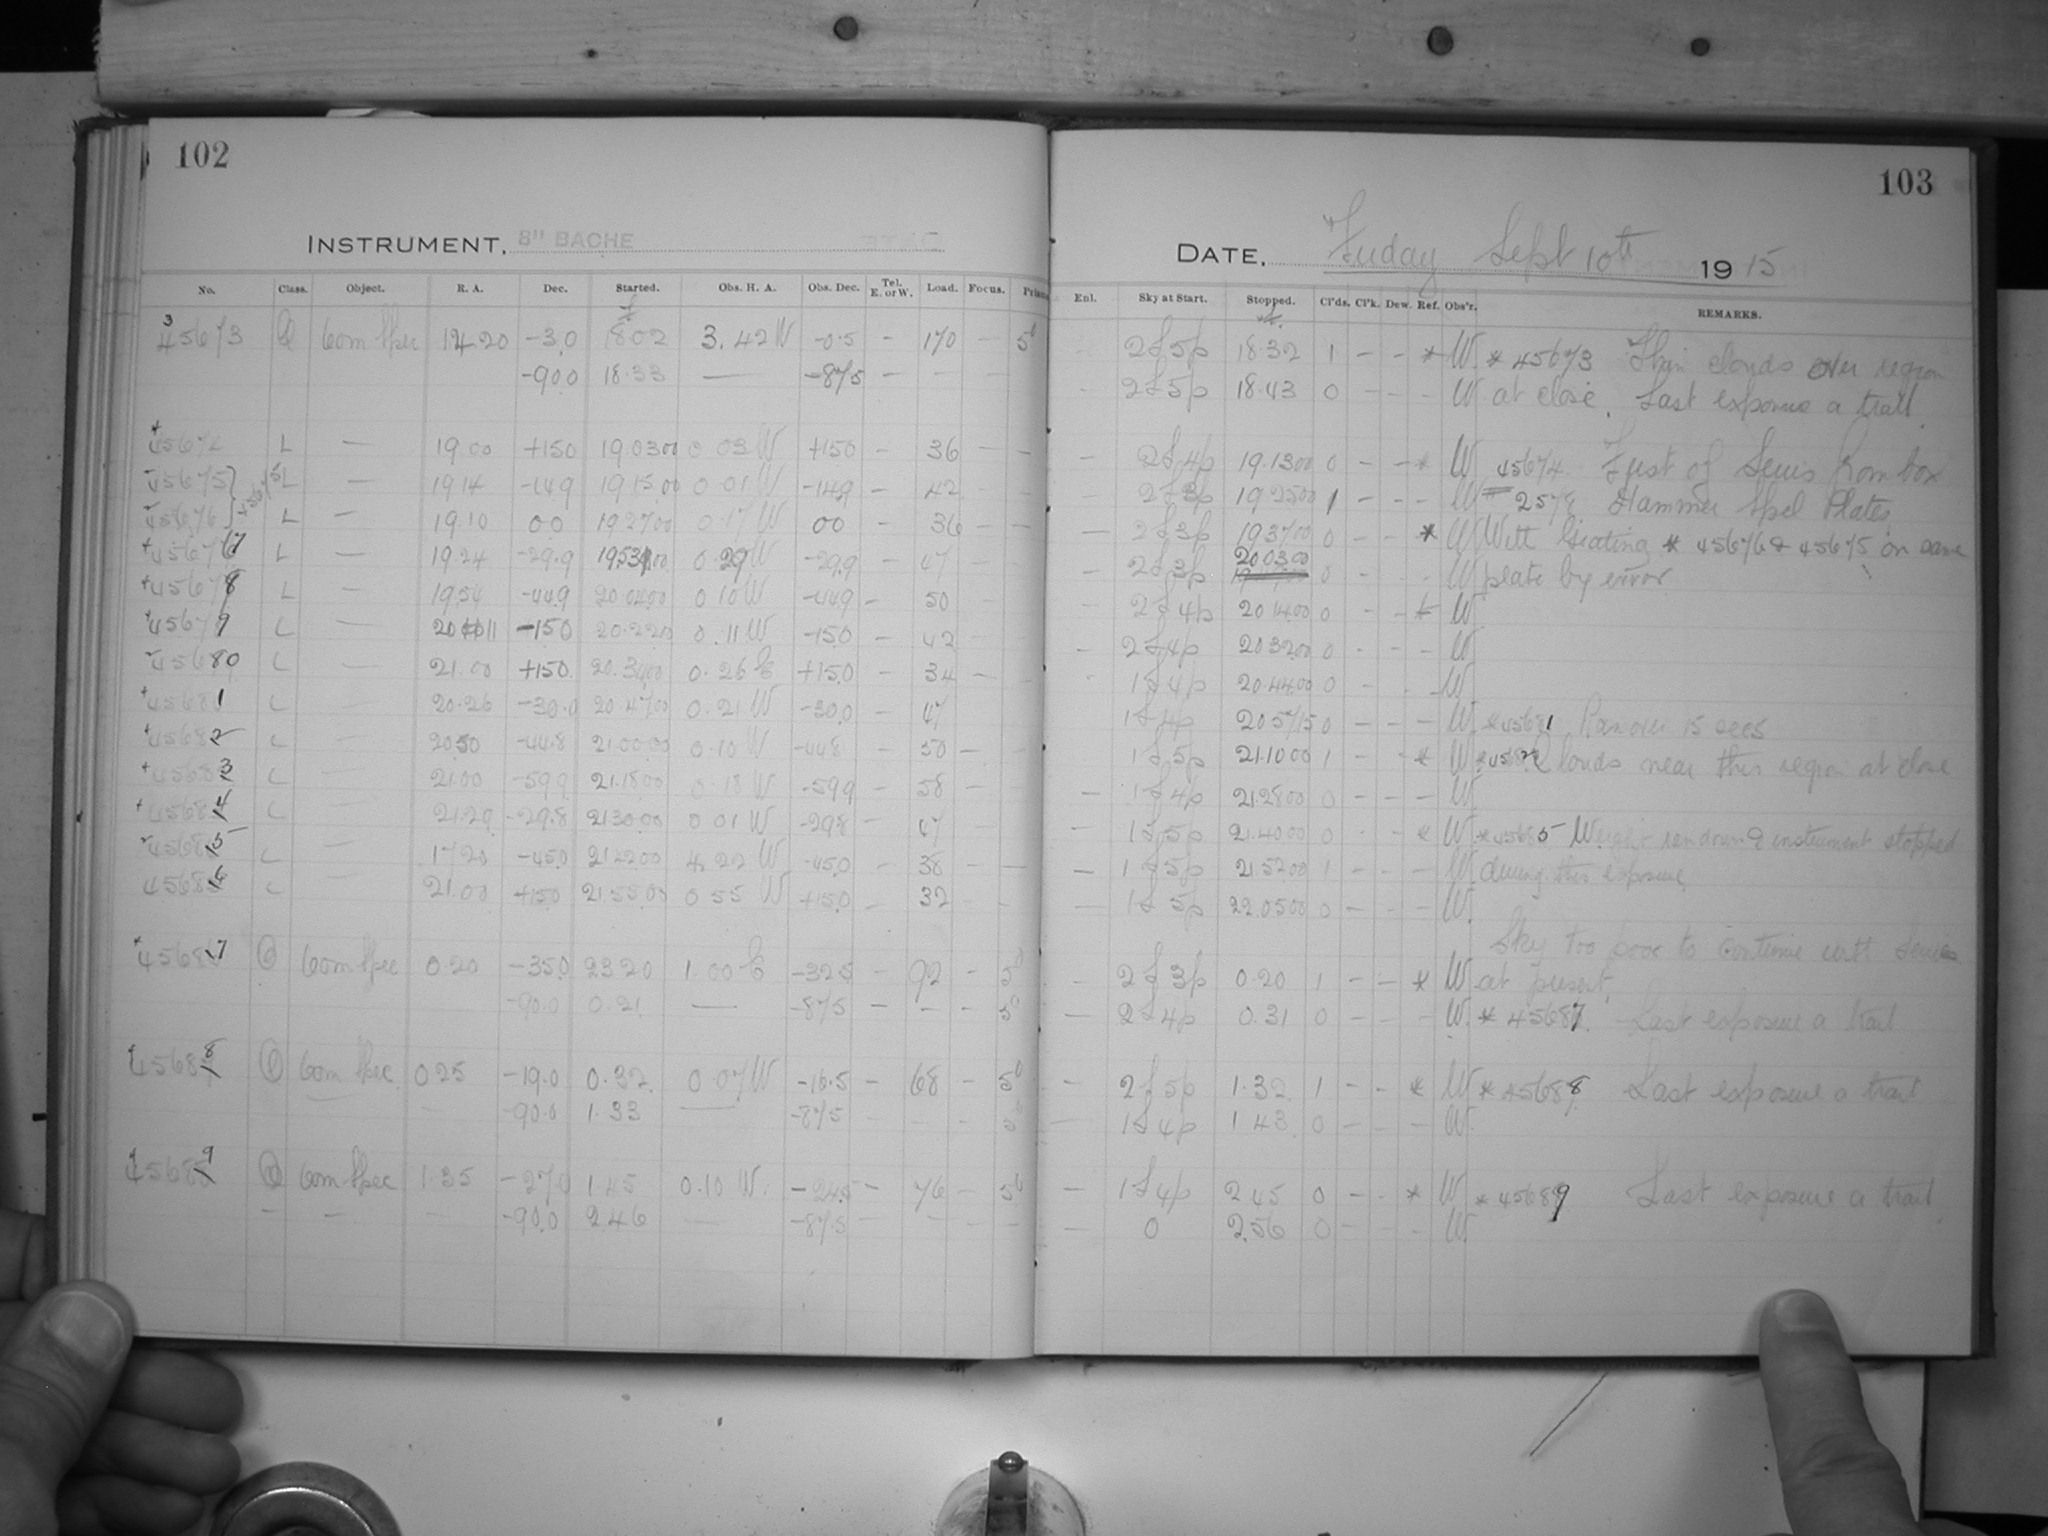 102
INSTRUMENT, 8" BACHE
No. Class. Object. R. A. Dec. Started. Obs. H. A. Obs. Dec. Tel. E. or W. Load. Focus. Prism
45673 60m Spec 14 20 -3.0 18.02 3.42 W -0.5 - 170 -
-90.0 18.33 — -87.5 - - -
45674 L — 19.00 +15.0 19.03 00 0 03 W +15.0 - 36 - -
45675 L — 19.14 -14.9 19.15.00 0.01 W -14.9 - 42 - -
45676 L — 19.10 00 19.27.00 0.17 W 00 - 36 - -
45677 L — 19.24 -29.9 0 29 W -29.9 - 47 -
45678 L — 19.54 -44.9 20.04.00 0 10 W -44.9 - 50 -
45679 L — 20 11 -15.0 20.22.0 0.11 W -15.0 - 42
45680 L — 21.00 +15.0 20.34.00 0.26 E +15.0 - 34 -
45681 L — 20.26 -30.0 20.47.00 0.21 W -30.0 - 47
45682 L — 20 50 -44.8 21.00.00 0.10 W -44.8 - 50 - -
45683 L — 21.00 -59.9 21.18.00 0.18 W -59.9 - 58 - -
45684 L — 21.29 -29.8 21.30.00 0 01 W -29.8 - 47 -
45685 L — 17 20 -45.0 21.42.00 4.22 W -45.0 - 38 - -
45686 L 21.00 +15.0 21.55.00 0 55 W +15.0 - 32 - -
45687 60m Spec 0.20 -35.0 23 20 1.00 E -32.5 - 92 -
-90.0 0.21 — -87.5 - - -
45688 60m Spec 0 25 -19.0 0.32 0.07 W -16.5 - 68 -
-90.0 1.33 — -87.5
45689 60m Spec 1.35 -27.0 1.45 0.10 W. -24.5 - 76 -
- - -90.0 2.46 — -87.5 - - -
103
DATE, Friday Sept 10th 1915
Enl. Sky at Start. Stopped. Cl'ds. Cl'k. Dew. Ref. Obs'r. REMARKS.
2f5p 18.32 1 - - * W. * 45673 Thin clouds over region
2f5p 18.43 0 - - - W at close. Last exposure a trail
2f4p 19.13 00 0 - - * W. 45674. First of Series from box
2f3p 19 25 00 1 - - - W 2578 Hammer Spcl Plates
2f3p 19 37 00 0 - - * W With Grating * 45676 & 45675 on same
2f3p 20 03 00 0 - - - W plate by error
2f4p 20 14 00 0 - - W
2f4p 20 32 00 0 - - - W
1f4p 20.44.00 0 - - - W.
1f4p 20 57 15 0 - - - W. * 45681 Ran over 15 secs
1f5p 21.10 00 1 - - * W. * 45682 Clouds near this region at close
1f4p 21.28 00 0 - - - W
1f5p 21.40 00 0 - - * W. * 45685 Weight ran down & instrument stopped
1f5p 21.52 00 1 - - - W. during this exposure.
1f5p 22.05 00 0 - - - W.
Sky too poor to continue with Series
2f3p 0.20 1 - - * W at present.
2f4p 0.31 0 - - - W. * 45687. Last exposure a trail
2f5p 1.32 1 - - * W * 45688 Last exposure a trail
1f4p 1 43 0 - - - W.
1f4p 2 45 0 - - * W * 45689 Last exposure a trail
0 2.56 0 - - - W.